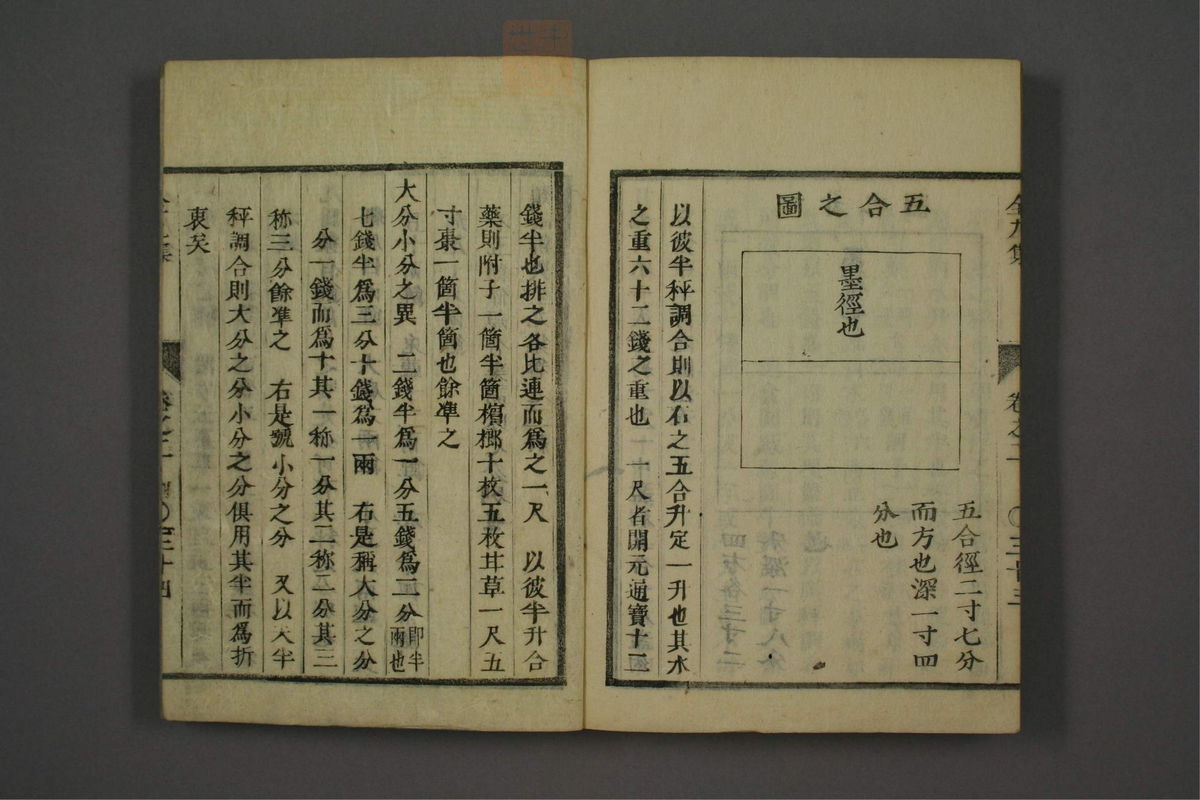 五合之圖
墨徑也
五合徑二寸七分
而方也深一寸四
分也
以彼半秤調合則以石之五合升定一升也其水
之重六十二錢之重也 一尺者開元通寶十二
錢半也排之各比連而爲之一尺 以彼半升合
藥則附子一箇半箇檳榔十枚五枚甘草一尺五
寸棗一箇半箇也餘準之
大分小分之異 二錢半爲一分五錢爲二分即半兩也
七錢半爲三分十錢爲一兩 右是稱大分之分
分一錢而爲十其一称一分其二称二分其三
称三分餘準之 右是號小分之分 又以大半
秤調合則大分之分小分之分俱用其半而爲折
衷矣